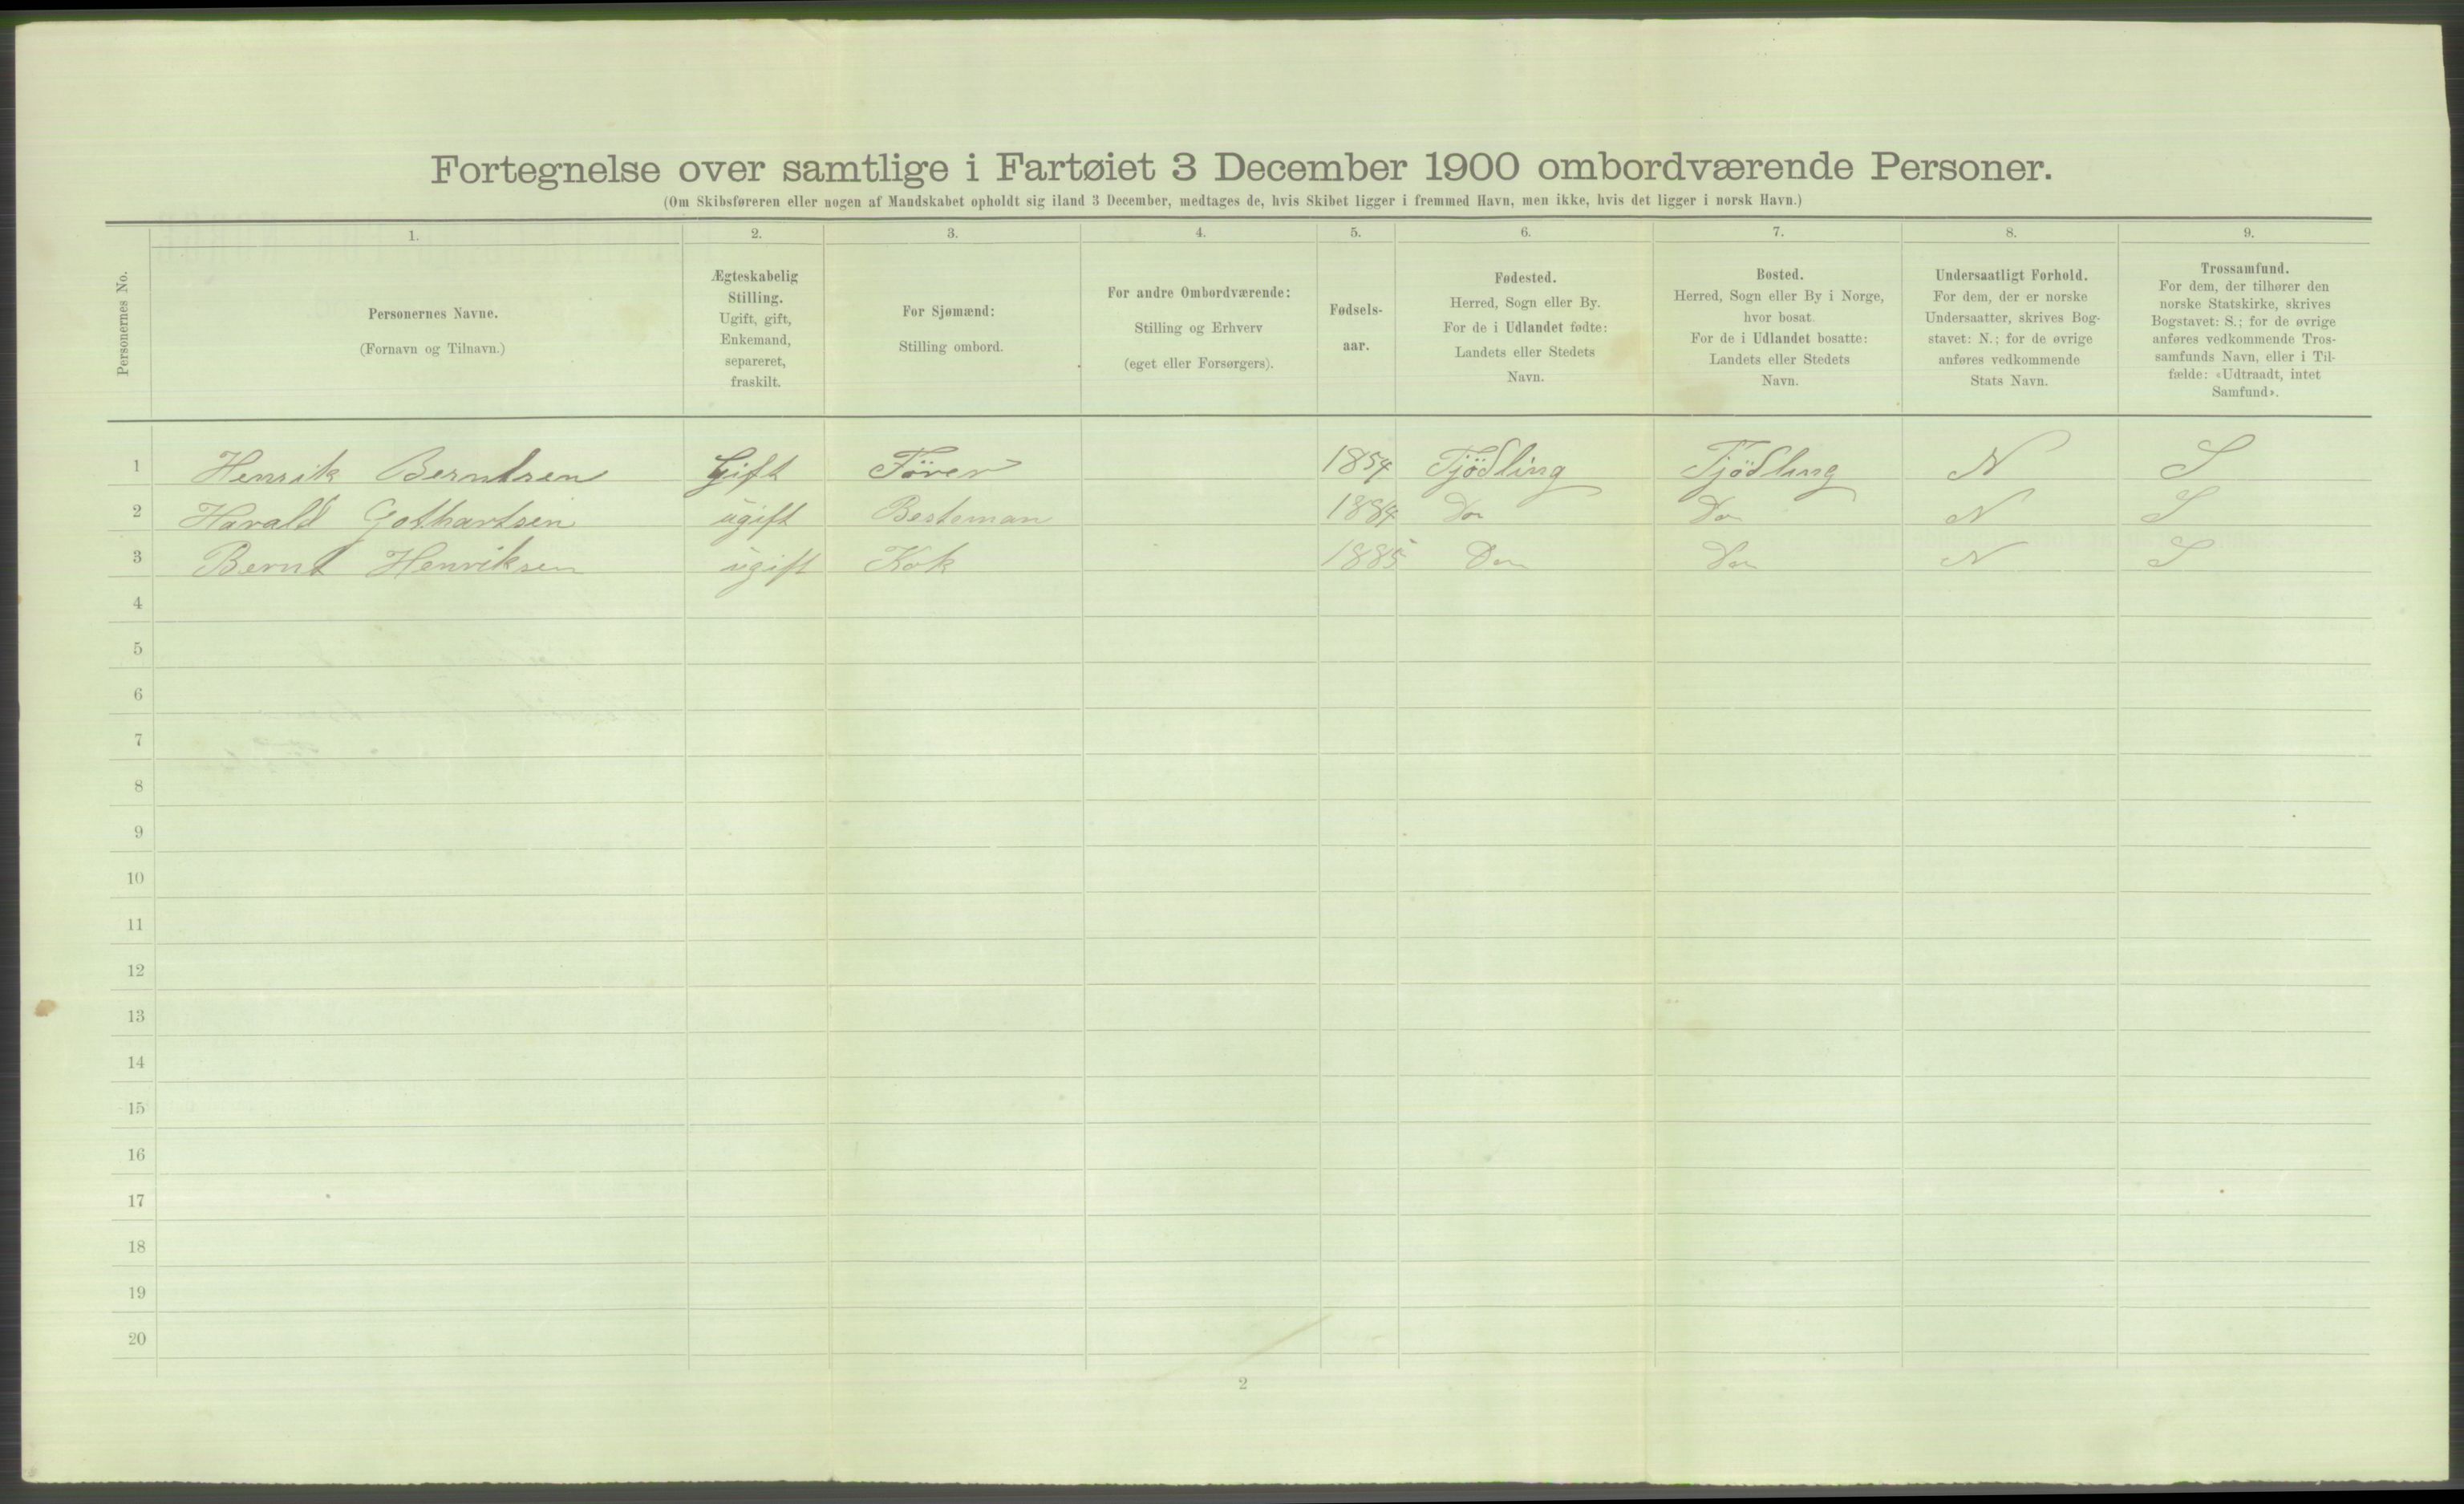 Fortegnelse over samtlige i Fartøiet 3 December 1900 ombordværende Personer.
(Om Skibsføreren eller nogen af Mandskabet opholdt sig iland 3 December, medtages de, hvis Skibet ligger i fremmed Havn, men ikke, hvis det ligger i norsk Havn.)
Personernes No.
1.
Personernes Navne.
(Fornavn og Tilnavn.)
2.
Ægteskabelig
Stilling.
Ugift, gift,
Enkemand,
separeret,
fraskilt.
3.
For Sjømænd:
Stilling ombord.
4.
For andre Ombordværende:
Stilling og Erhverv
(eget eller Forsørgers).
5.
Fødsels-
aar.
6.
Fødested.
Herred, Sogn eller By.
For de i Udlandet fødte:
Landets eller Stedets
Navn.
7.
Bosted.
Herred, Sogn eller By i Norge,
hvor bosat.
For de i Udlandet bosatte:
Landets eller Stedets
Navn.
8.
Undersaatligt Forhold.
For dem, der er norske
Undersaatter, skrives Bog-
stavet: N.; for de øvrige
anføres vedkommende
Stats Navn.
9.
Trossamfund.
For dem, der tilhører den
norske Statskirke, skrives
Bogstavet: S.; for de øvrige
anføres vedkommende Tros-
samfunds Navn, eller i Til-
fælde: «Udtraadt, intet
Samfund».
1 Henrik Berntsen Gift Förer 1854 Tjödling Tjödling N S
2 Harald Gothartsen ugift Besteman 1884 Do Do N S
3 Bernt Henriksen ugift Kok 1885 Do Do N S
4
5
6
7
8
9
10
11
12
13
14
15
16
17
18
19
20
2